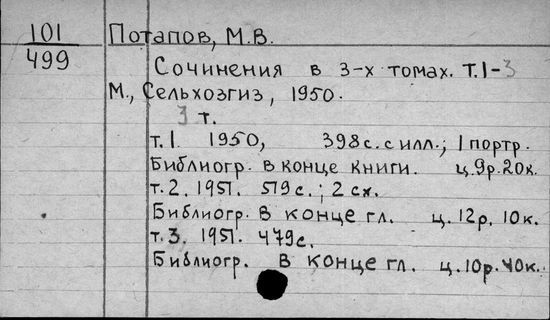 101
499
Потапов, М.В.
Сочинения в 3-х томах. Т.1-3
М., Сельхозгиз, 1950.
3 т.
т.1. 1950, 398с. с илл.; 1 портр.
Библиогр. в конце книги. ц.9р.20к.
т.2. 1951. 519с.; 2 сх.
Библиогр. в конце гл. ц.12р. 10к.
т.3. 1951. 479с.
Библиогр. в конце гл. ц.10р.40к.